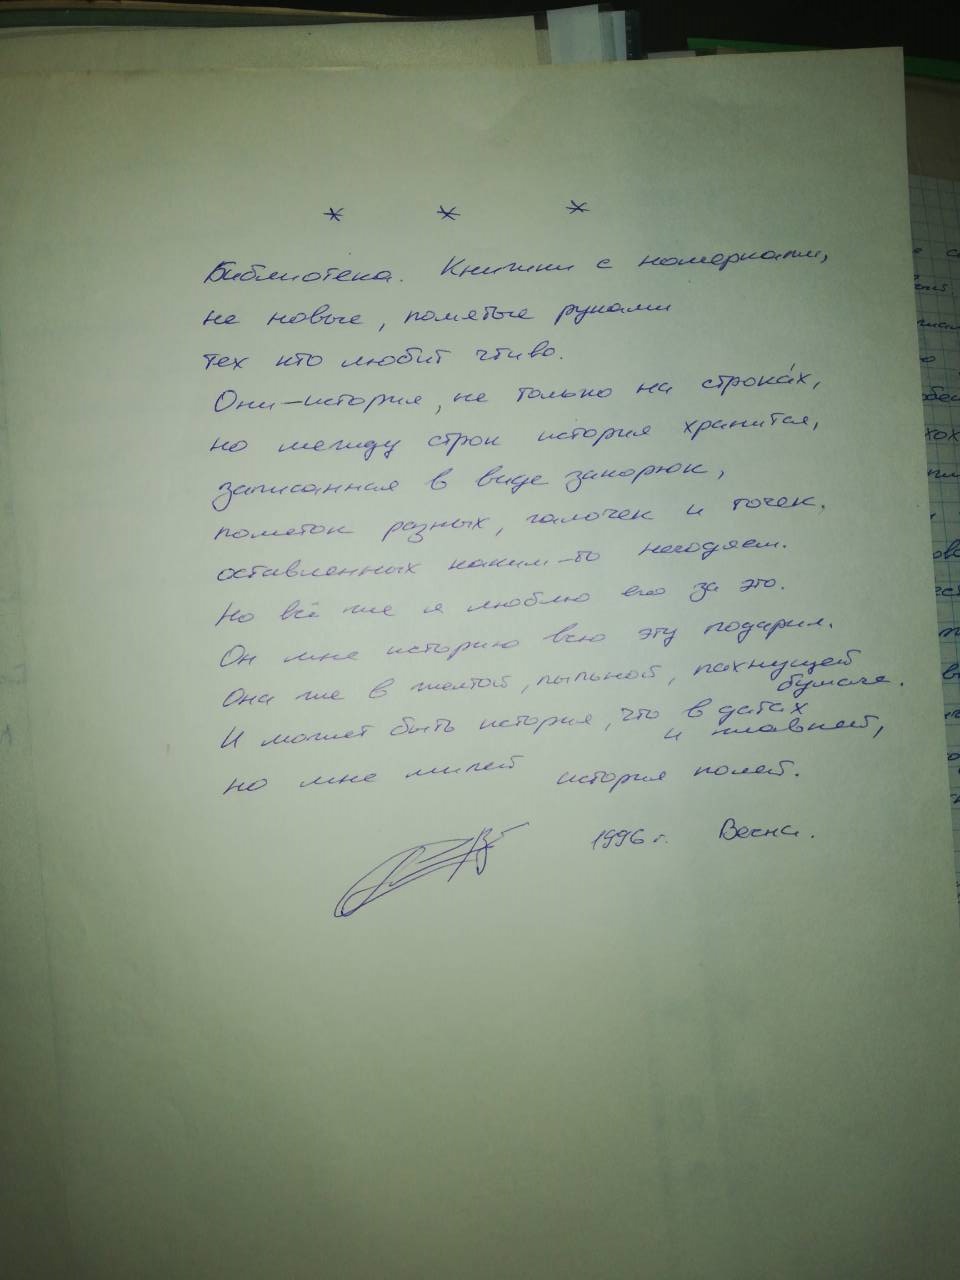 * * *
Библиотека. Книжки с номерками,
не новые, помятые руками
тех кто любит чтиво.
Они – история, не только на строка́х,
но между строк история хранится,
записанная в виде закорюк,
пометок разных, галочек и точек.
оставленных каким-то негодяем.
Но всё же я люблю его за это.
Он мне историю всю эту подарил.
Она же в желтой, пыльной, пахнущей
бумаге.
И может быть история, что в датах
и главней,
но мне милей история полей.
1996 г. Весна.